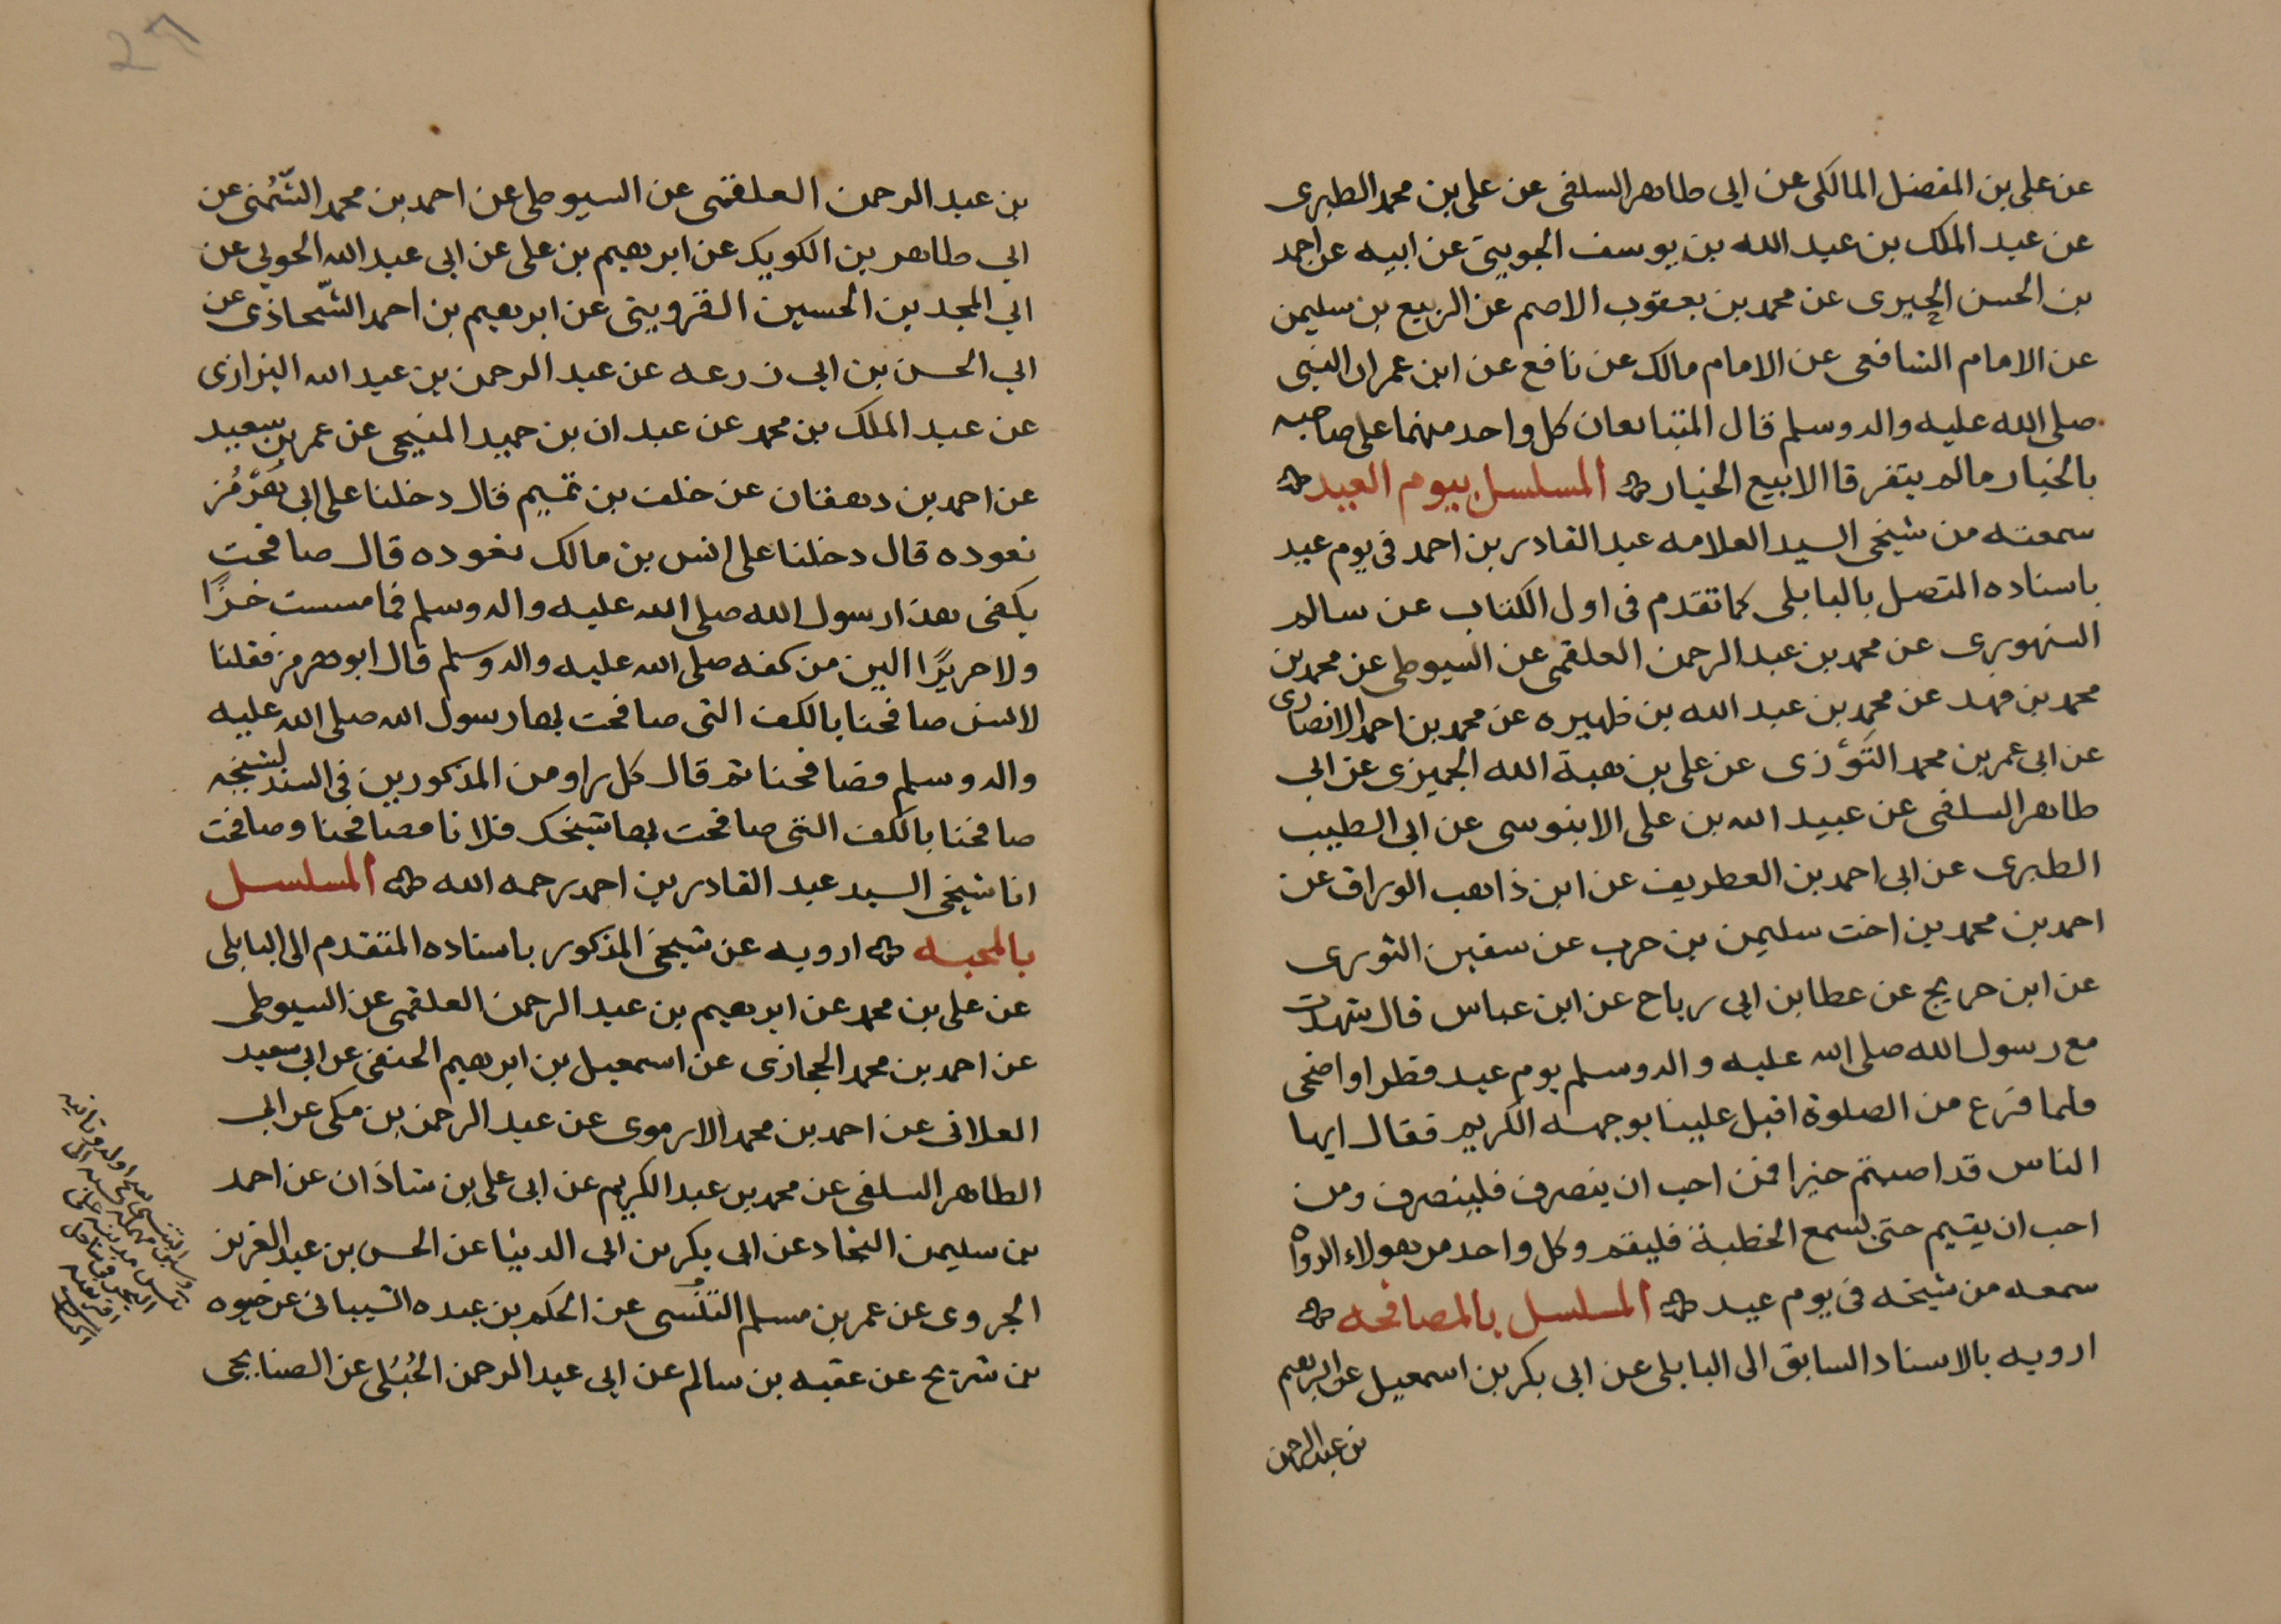 عن على بن المفضل المالكى عن ابى طاهر السلفى عن على بن محمد الطبرى
عن عبد الملك بن عبد الله بن يوسف الجوينى عن ابيه عن احمد
بن الحسن الحيرى عن محمد بن يعقوب الاصم عن الربيع بن سليمن
عن الامام الشافعى عن الامام مالك عن نافع عن ابن عمر ان النبى
صلى الله عليه واله وسلم قال المتبايعان كل واحد منهما على صاحبه
بالخيار مالم يتفرقا الا بيع الخيار المسلسل بيوم العيد
سمعته من شيخى السيد العلامه عبد القادر بن احمد فى يوم عيد
باسناده المتصل بالبابلى كما تقدم فى اول الكتاب عن سالم
السنهورى عن محمد بن عبد الرحمن العلقمى عن السيوطى عن محمد بن
محمد بن فهد عن محمد بن عبد الله بن ظهيره عن محمد بن احمد الانصارى
عن ابى عمر بن محمد التَوْزى عن على بن هبة الله الجميزى عن ابى
طاهر السلفى عن عبيد الله بن على الابنوسى عن ابى الطيب
الطبرى عن ابى احمد بن الغطريف عن ابن ذاهب الوراق عن
احمد بن محمد بن اخت سليمن بن حرب عن سفين الثورى
عن ابن جريج عن عطا بن ابى رباح عن ابن عباس قال شهدت
مع رسول الله صلى الله عليه واله وسلم يوم عيد فطر او اضحى
فلما فرغ من الصلوة اقبل علينا بوجهه الكريم فقال ايها
الناس قد اصبتم خيرا فمن احب ان ينصرف فلينصرف ومن
احب ان يقيم حتى يسمع الخطبة فليقم وكل واحد من هولاء الرواه
سمعه من شيخه فى يوم عيد المسلسل بالمصافحه
ارويه بالاسناد السابق الى البابلى عن ابى بكر بن اسمعيل عن ابرهيم
بن عبد الرحمن
بن عبد الرحمن العلقمى عن السيوطى عن احمد بن محمد الشُّمُنى عن
ابى طاهر بن الكويك عن ابرهيم بن على عن ابى عبد الله الخويى عن
ابى المجد بن الحسين القزوينى عن ابرهيم بن احمد الشّحاذى عن
ابى الحسن بن ابى زرعه عن عبد الرحمن بن عبد الله البزازى
عن عبد الملك بن محمد عن عبدان بن حميد المنبجى عن عمر بن سعيد
عن احمد بن دهقان عن خلف بن تميم قال دخلنا على ابى هُرْمُز
نعوده قال دخلنا على انس بن مالك نعوده قال صافحت
بكفى هذا رسول الله صلى الله عليه واله وسلم فما مسست خزًا
ولا حريرًا الين من كفه صلى الله عليه واله وسلم قال ابو هرمز فقلنا
لانس صافحنا بالكف التى صافحت بها رسول الله صلى الله عليه
واله وسلم فصافحنا ثم قال كل راو من المذكورين فى السند لشيخه
صافحنا بالكف التى صافحت بها شيخك فلانا فصافحنا وصافحت
انا شيخى السيد عبد القادر بن احمد رحمه الله المسلسل
بالمحبه ارويه عن شيخى المذكور باسناده المتقدم الى البابلى
عن على بن محمد عن ابرهيم بن عبد الرحمن العلقمى عن السيوطى
عن احمد بن محمد الحجازى عن اسمعيل بن ابرهيم الحنفى عن ابى سعيد
العلائى عن احمد بن محمد الارموى عن عبد الرحمن بن مكى عن ابى
الطاهر السلفى عن محمد بن عبد الكريم عن ابى على بن شاذان عن احمد
بن سليمن النجاد عن ابى بكر بن ابى الدنيا عن الحسن بن عبد العزيز
الجروى عن عمر بن مسلم التنُسى عن الحكم بن عبده الشيبانى عن حيوه
بن شريح عن عقبه بن سالم عن ابى عبد الرحمن الحُبُلى عن الصنابحى